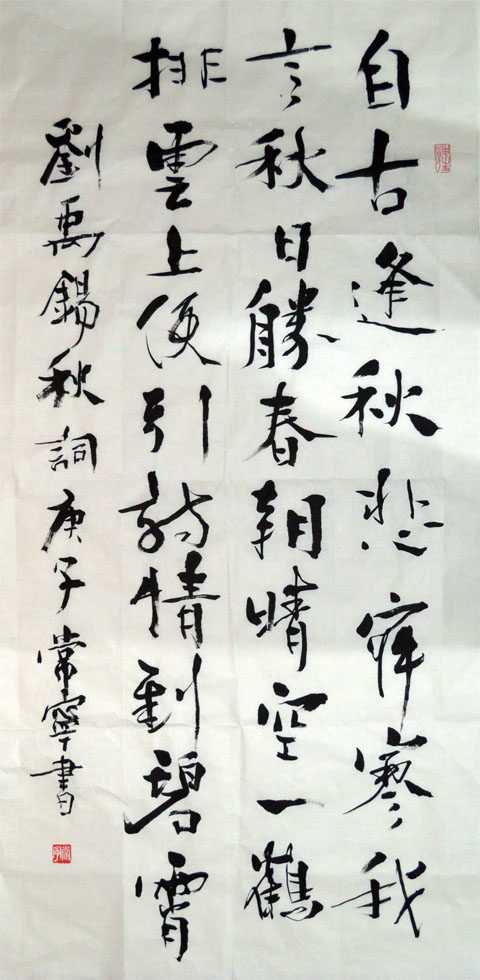 自古逢秋悲寂寥我
言秋日勝春朝晴空一鶴
排雲上便引詩情到碧霄
劉禹錫秋詞庚子常寧書